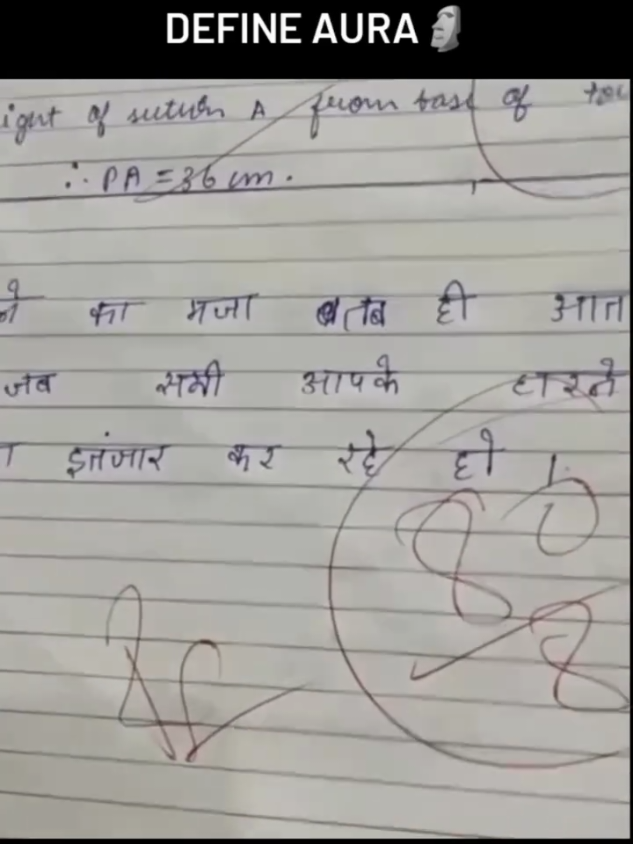 DEFINE AURA 🗿
ight of sutwn A from base of tow
∴ PA = 36 cm.
ने का मजा तब ही आत
जब सभी आपके हारने
इतंजार कर रहे हो ।
80